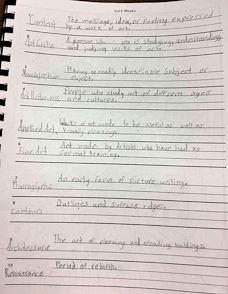 Content The message, idea, or feeling expressed
by a work of art.
Art Critic A person who job is studying, understanding
and judging works of art.
Nonobjective Having no really identifiable subject or
object.
Art Historians People who study art of different ages
and cultures.
Applied Art Works of art made to be useful as well as
visually pleasing.
Art made by artists who have had no
formal training.
Hieroglyphic An early form of picture writing.
Contours Outlines and surface ridges.
Architecture The art of planning and creating buildings.
Renaissance Period of rebirth.